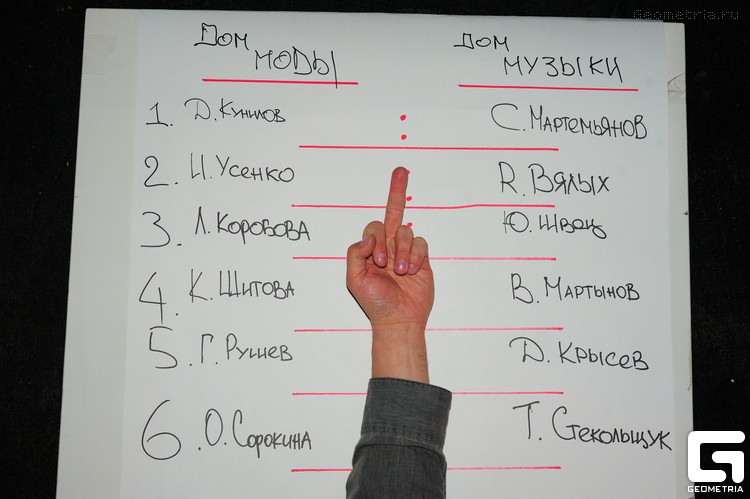 Geometria.ru
Дом Моды
Дом Музыки
1. Д. Куников : С. Мартемьянов
2. И. Усенко : Я. Вялых
3. Л. Коробова : Ю. Швец
4. К. Шитова В. Мартынов
5. Г. Рушев Д. Крысев
6. О. Сорокина Т. Стекольщук
GEOMETRIA